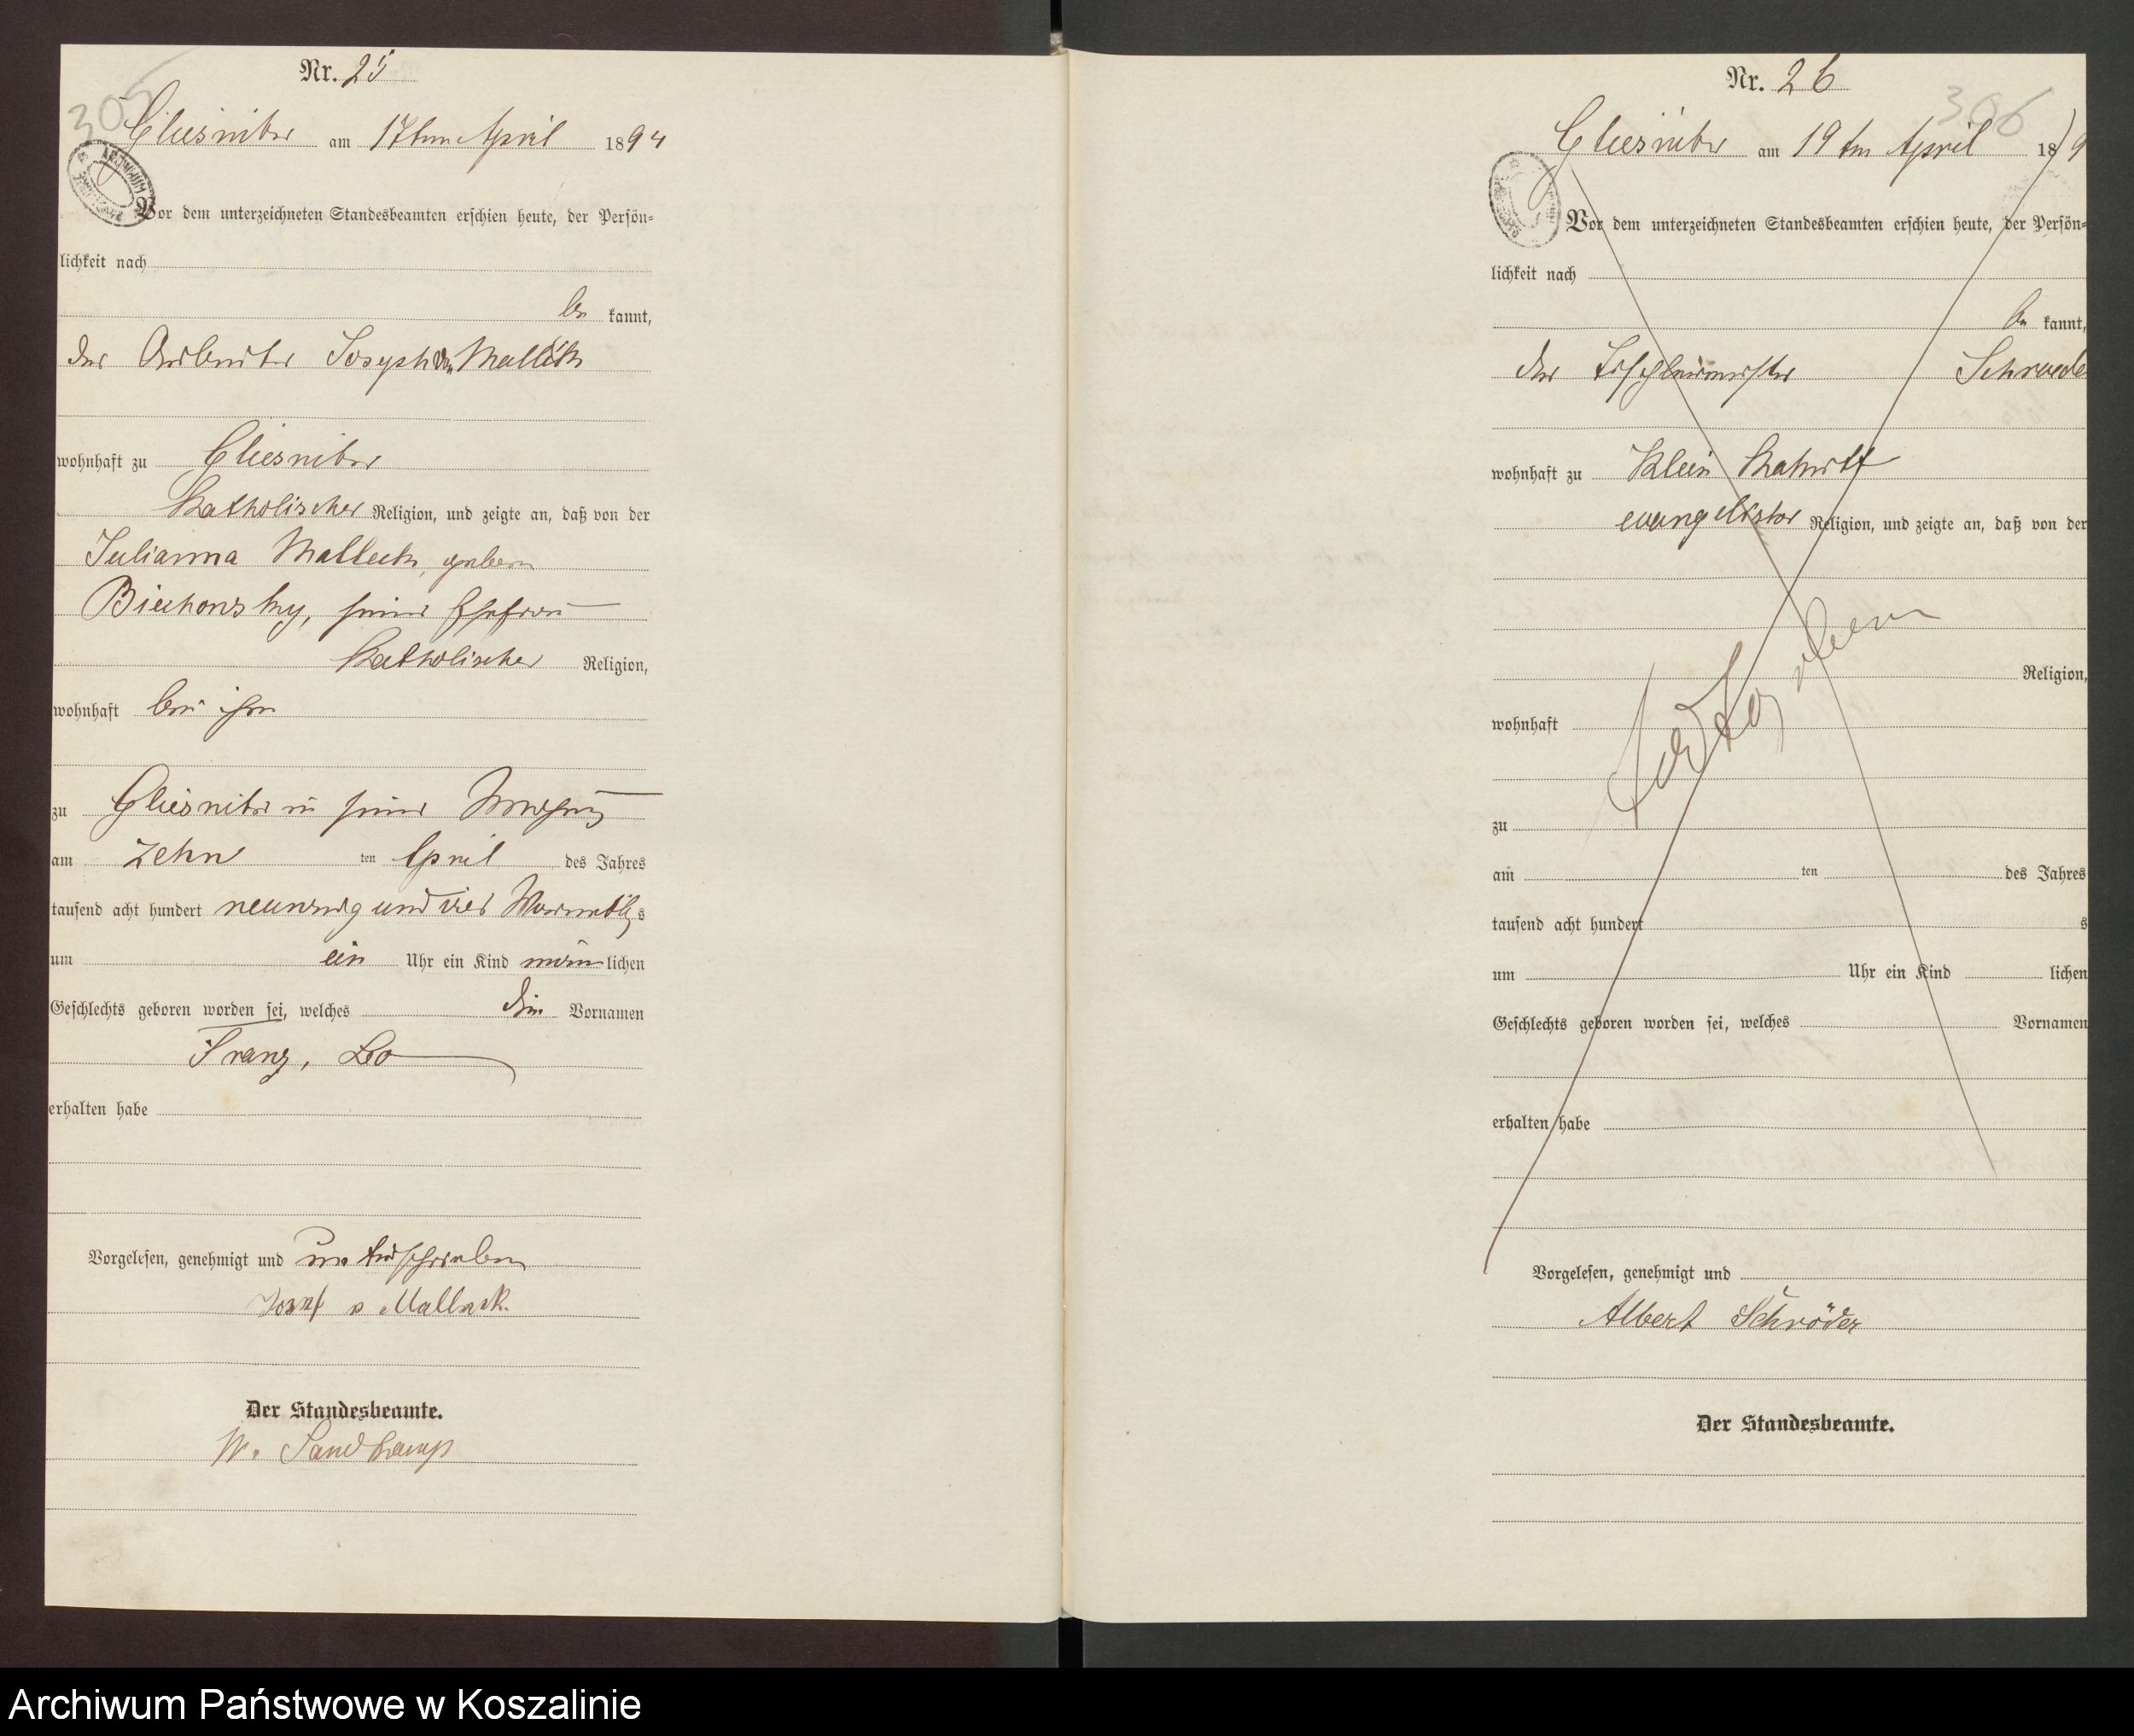 Nr. 25
305
Gliesnitz am 17ten April 1894
Vor dem unterzeichneten Standesbeamten erschien heute, der Persön=
lichkeit nach
be kannt,
der Arbeiter Joseph von Malleck
wohnhaft zu Gliesnitz
Katholischer Religion, und zeigte an, daß von der
Julianna Malleck, geboren
Biechonsky, seiner Ehefrau
Katholischer Religion,
wohnhaft bei ihm
zu Gliesnitz in seiner Wohnung
am zehn ten April des Jahres
tausend acht hundert neunzig und vier Vormittags
um ein Uhr ein Kind männlichen
Geschlechts geboren worden sei, welches die Vornamen
Franz, Leo
erhalten habe
Vorgelesen, genehmigt und unterschrieben
Josef v Malleck.
Der Standesbeamte.
W. Sandkamp
Nr. 26
306
Gliesnitz am 19ten April 189
Vor dem unterzeichneten Standesbeamten erschien heute, der Persön=
lichkeit nach
be kannt,
der Tischlermeister Schroede
wohnhaft zu Klein
Religion, und zeigte an, daß von der
Religion,
wohnhaft
zu
am ten des Jahres
tausend acht hundert s
um Uhr ein Kind lichen
Geschlechts geboren worden sei, welches Vornamen
erhalten habe
Vorgelesen, genehmigt und
Albert Schröder
Der Standesbeamte.
Archiwum Państwowe w Koszalinie